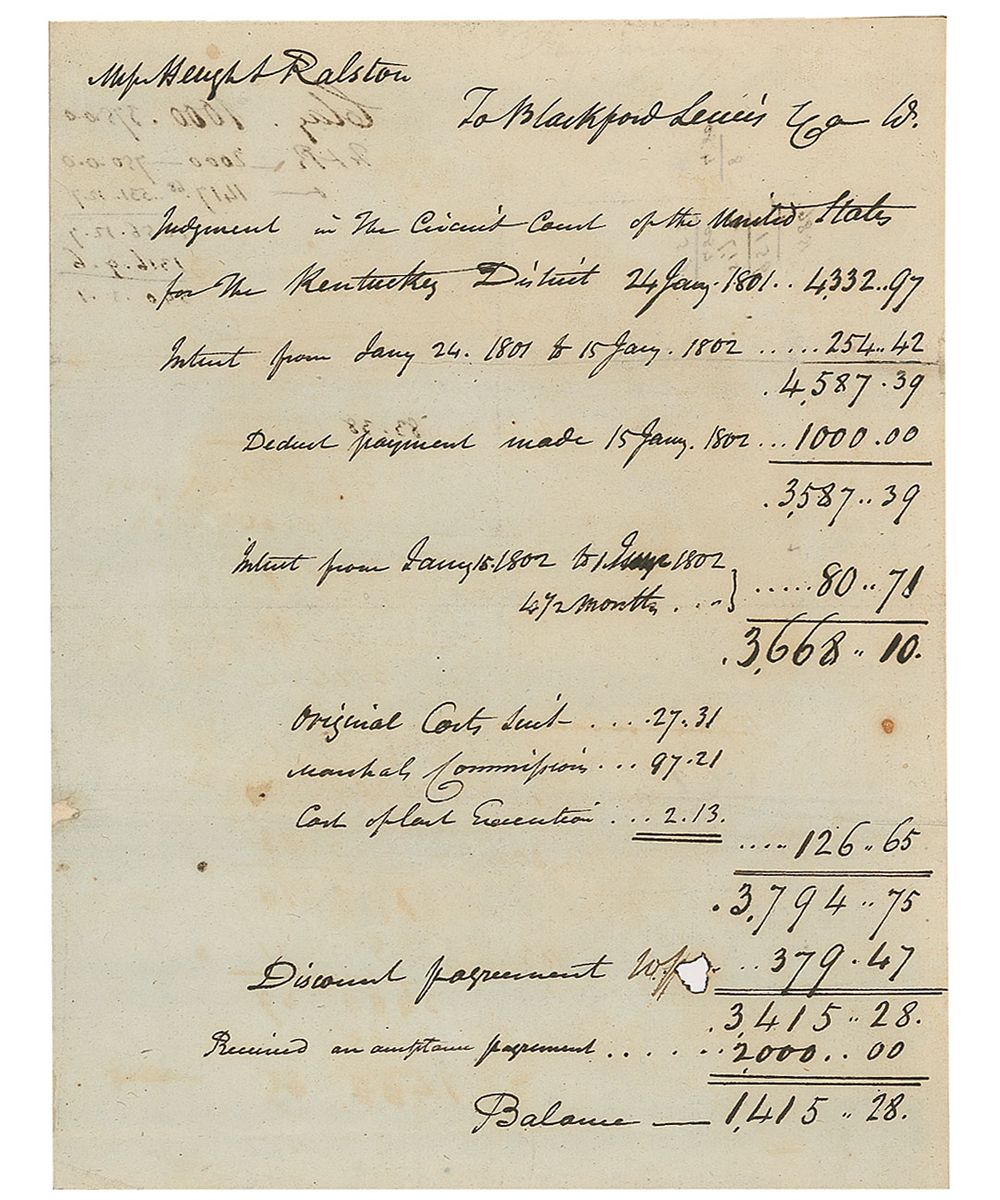 Mess Haught & Ralston
To Blackford Lewis & Co Dr.
Judgment in The Circuit Court of the United States
for The Kentuckey District 24 Jany. 1801.. 4,332..97
Intrest from Jany 24. 1801 to 15 Jany. 1802 ..... 254..42
.4,587.39
Deduct payment made 15 Jany. 1802 ... 1000.00
.3,587..39
Intrest from Jany 15. 1802 to 1 1802
4 1/2 Months ....} ..... 80..71
.3,668.. 10.
Original Costs Suit ..... 27.31
Marshals Commissions ... 97.21
Cost of last Execution ... 2.13.
.... 126..65
.3,794..75
Discount pagreement ... 379.47
.3,415..28.
Received an acceptance pagreement ...... 2,000.. 00
Balance — 1,415..28.